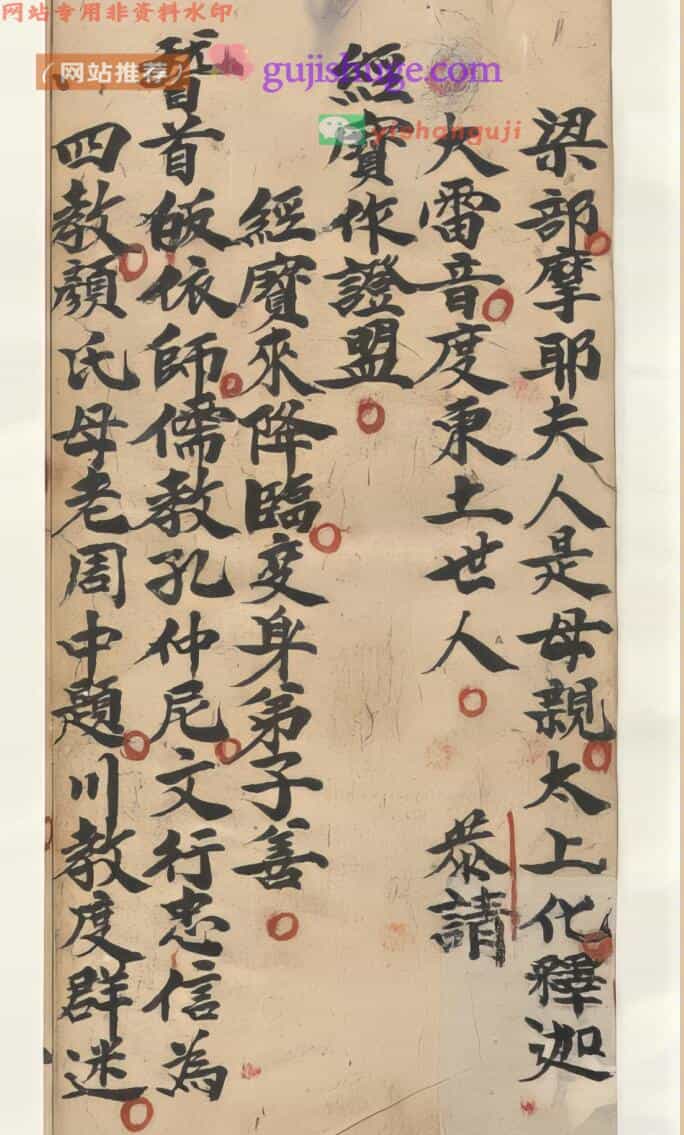 网站专用非资料水印
(网站推荐)
gujishuge.com
yishanguji
梁部摩耶夫人是母親太上化釋迦
大雷音度東土世人 恭請
經寶作證盟
經寶來降臨变身弟子善
首皈依師儒教孔仲尼文行忠信為
四教顏氏母老周中題川教度群迷